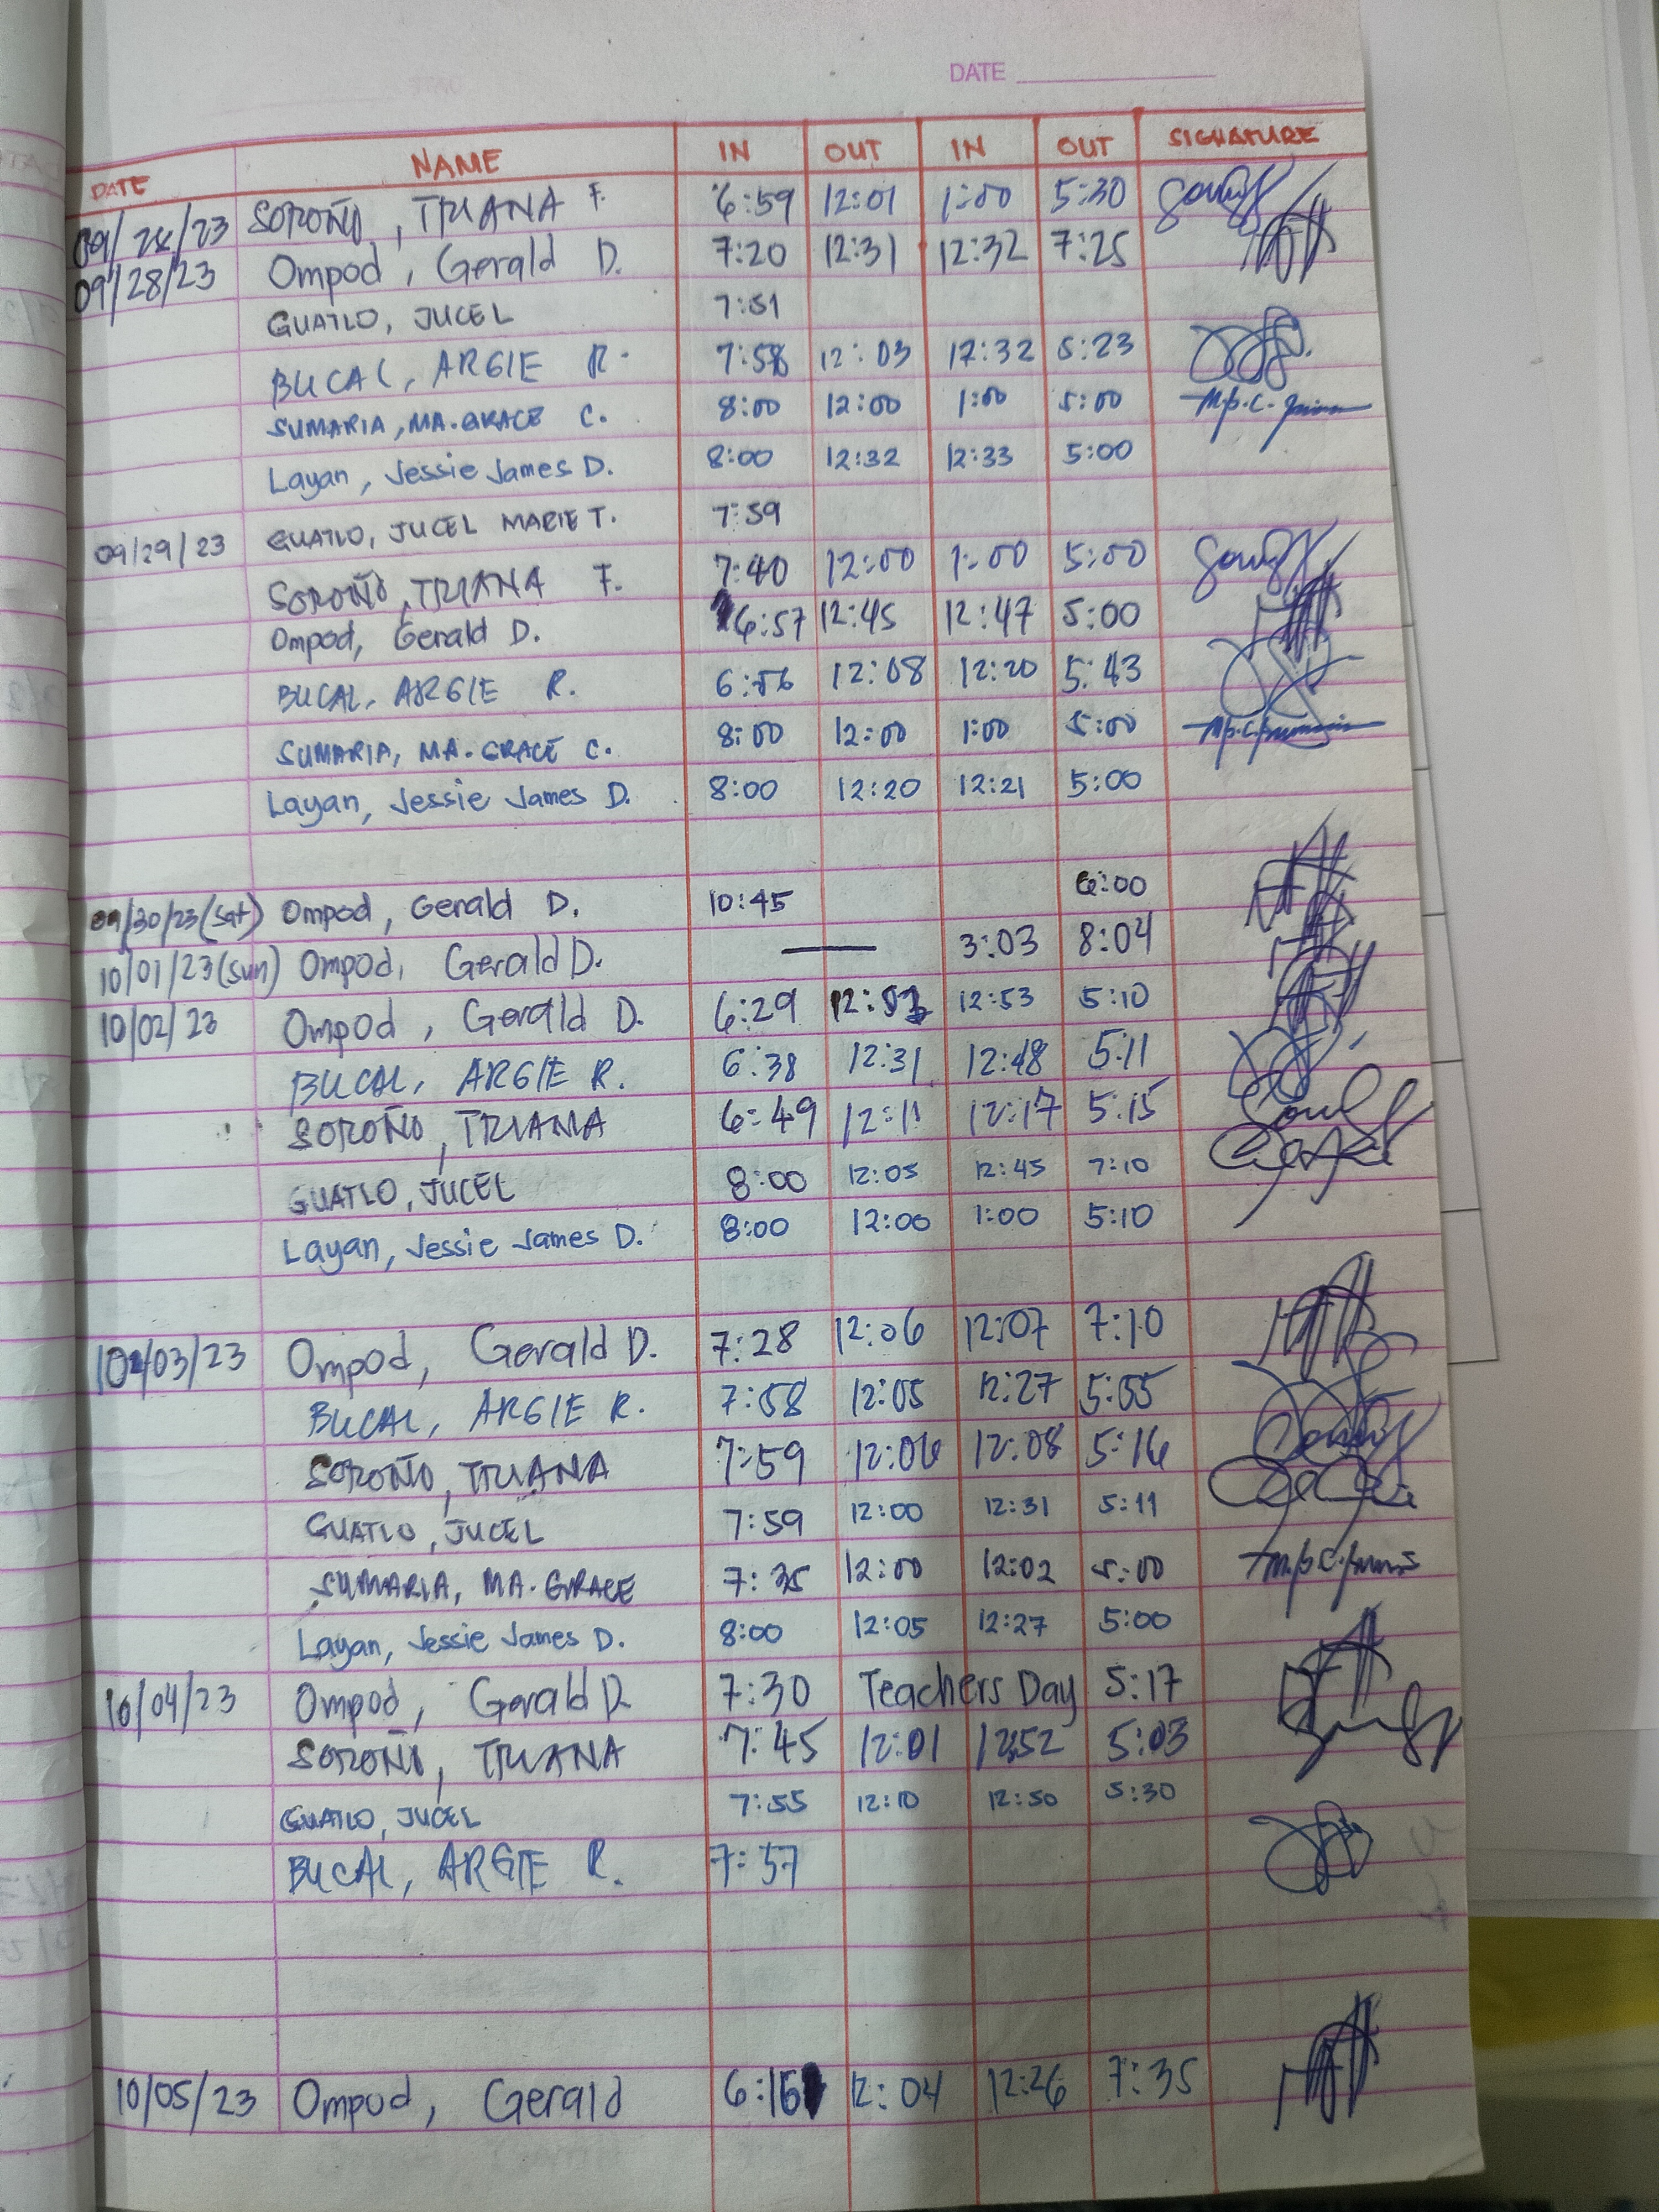 DATE
DATE NAME IN OUT IN OUT SIGNATURE
09/28/23 SOROÑO, TRIANA F. 6:59 12:01 1:00 5:30
09/28/23 Ompod, Gerald D. 7:20 12:31 12:32 7:25
GUATLO, JUCEL 7:51
BUCAL, ARGIE R. 7:58 12:03 12:32 5:23
SUMARIA, MA. GRACE C. 8:00 12:00 1:00 5:00
Layan, Jessie James D. 8:00 12:32 12:33 5:00
09/29/23 GUATLO, JUCEL MARIE T. 7:59
SOROÑO, TRIANA F. 7:40 12:00 1:00 5:00
Ompod, Gerald D. 6:57 12:45 12:47 5:00
BUCAL, ARGIE R. 6:56 12:08 12:20 5:43
SUMARIA, MA. GRACE C. 8:00 12:00 1:00 5:00
Layan, Jessie James D. 8:00 12:20 12:21 5:00
09/30/23 (Sat) Ompod, Gerald D. 10:45 6:00
10/01/23 (Sun) Ompod, Gerald D. — 3:03 8:04
10/02/23 Ompod, Gerald D. 6:29 12:53 5:10
BUCAL, ARGIE R. 6:38 12:31 12:48 5:11
SOROÑO, TRIANA 6:49 12:11 12:17 5:15
GUATLO, JUCEL 8:00 12:05 12:45 7:10
Layan, Jessie James D. 8:00 12:00 1:00 5:10
10/03/23 Ompod, Gerald D. 7:28 12:06 12:07 7:10
BUCAL, ARGIE R. 7:58 12:05 12:27 5:55
SOROÑO, TRIANA 7:59 12:06 12:08 5:16
GUATLO, JUCEL 7:59 12:00 12:31 5:11
SUMARIA, MA. GRACE 7:35 12:00 12:02 5:00
Layan, Jessie James D. 8:00 12:05 12:27 5:00
10/04/23 Ompod, Gerald D. 7:30 Teachers Day 5:17
SOROÑO, TRIANA 7:45 12:01 12:52 5:03
GUATLO, JUCEL 7:55 12:10 12:50 5:30
BUCAL, ARGIE R. 7:57
10/05/23 Ompod, Gerald 6:16 12:04 12:26 7:35